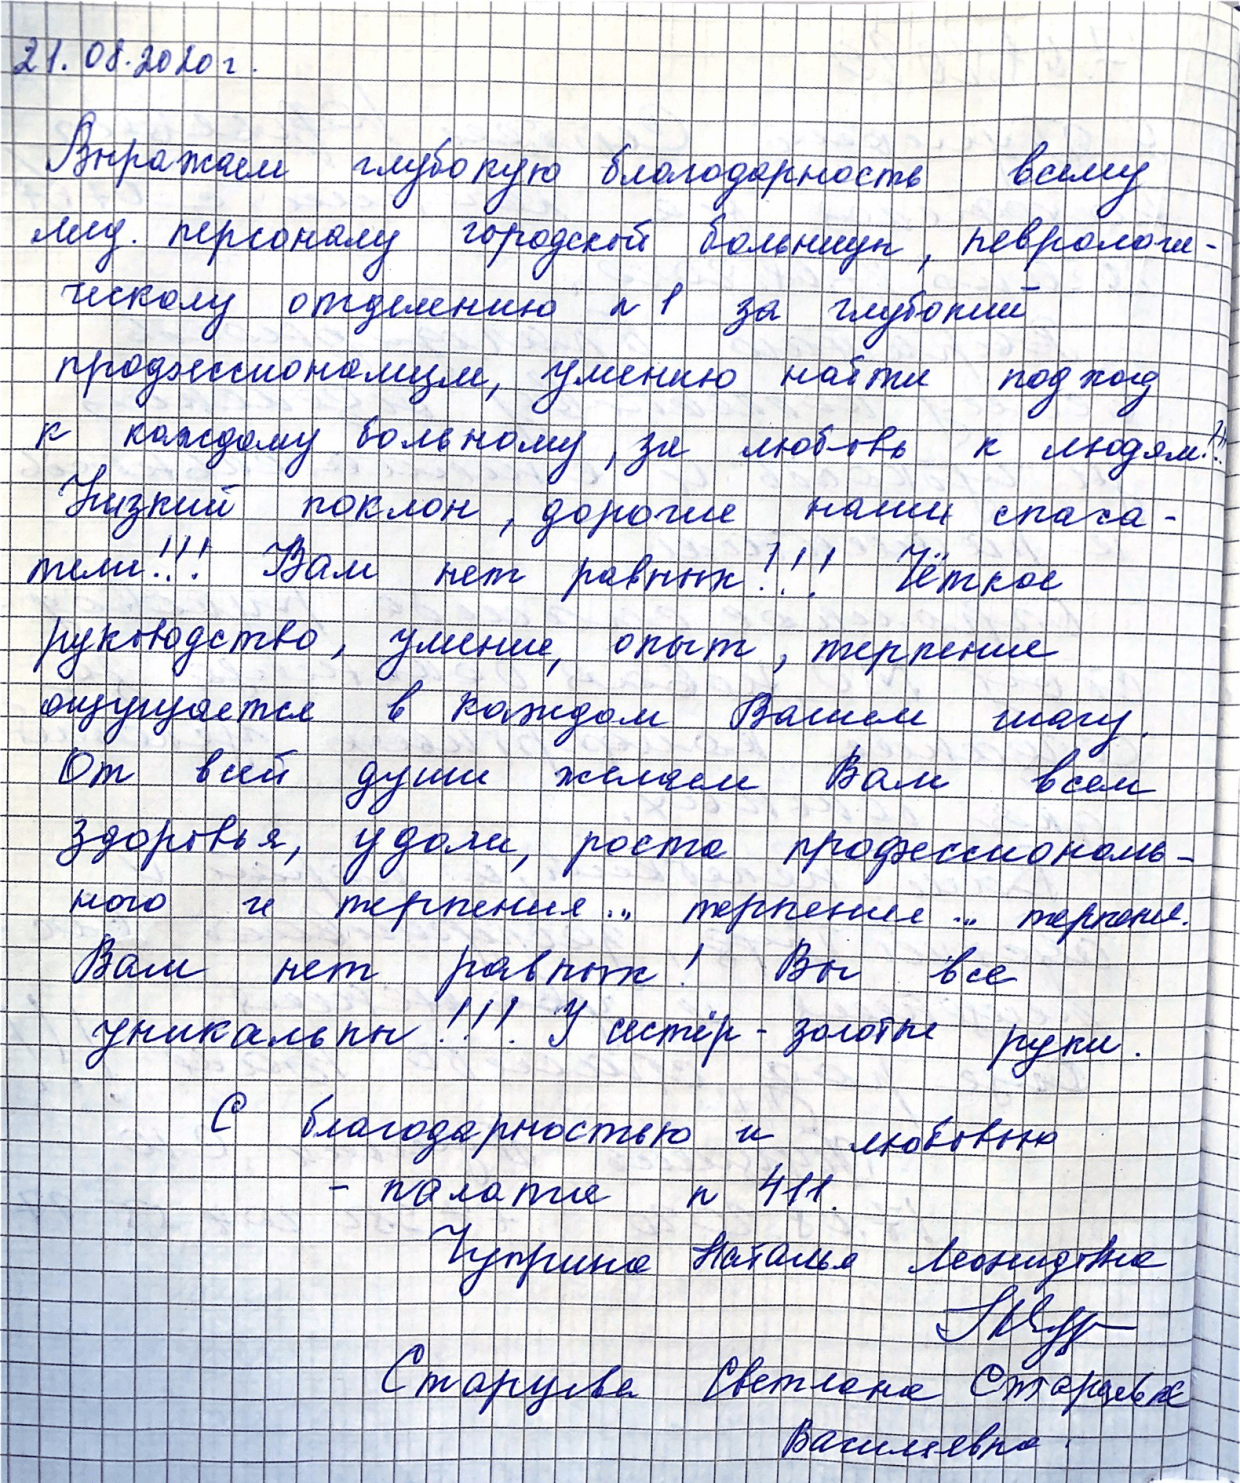 21.08.2020г.
Выражаем глубокую благодарность всему
мед. персоналу городской больницы, неврологи-
ческому отделению n 1 за глубокий
профессионализм, умению найти подход
к каждому больному, за любовь к людям!!!
Низкий поклон, дорогие наши спаса-
тели!!! Вам нет равных!!! Чёткое
руководство, умение, опыт, терпение
ощущается в каждом Вашем шагу.
От всей души желаем Вам всем
здоровья, удачи, роста профессиональ-
ного и терпения... терпения... терпения.
Вам нет равных! Вы все
уникальны!!! У сестёр - золотые руки.
С благодарностью и любовью
- палата n 411.
Чуприна Наталья Леонидовна
Старцева Светлана Старцева
Васильевна.